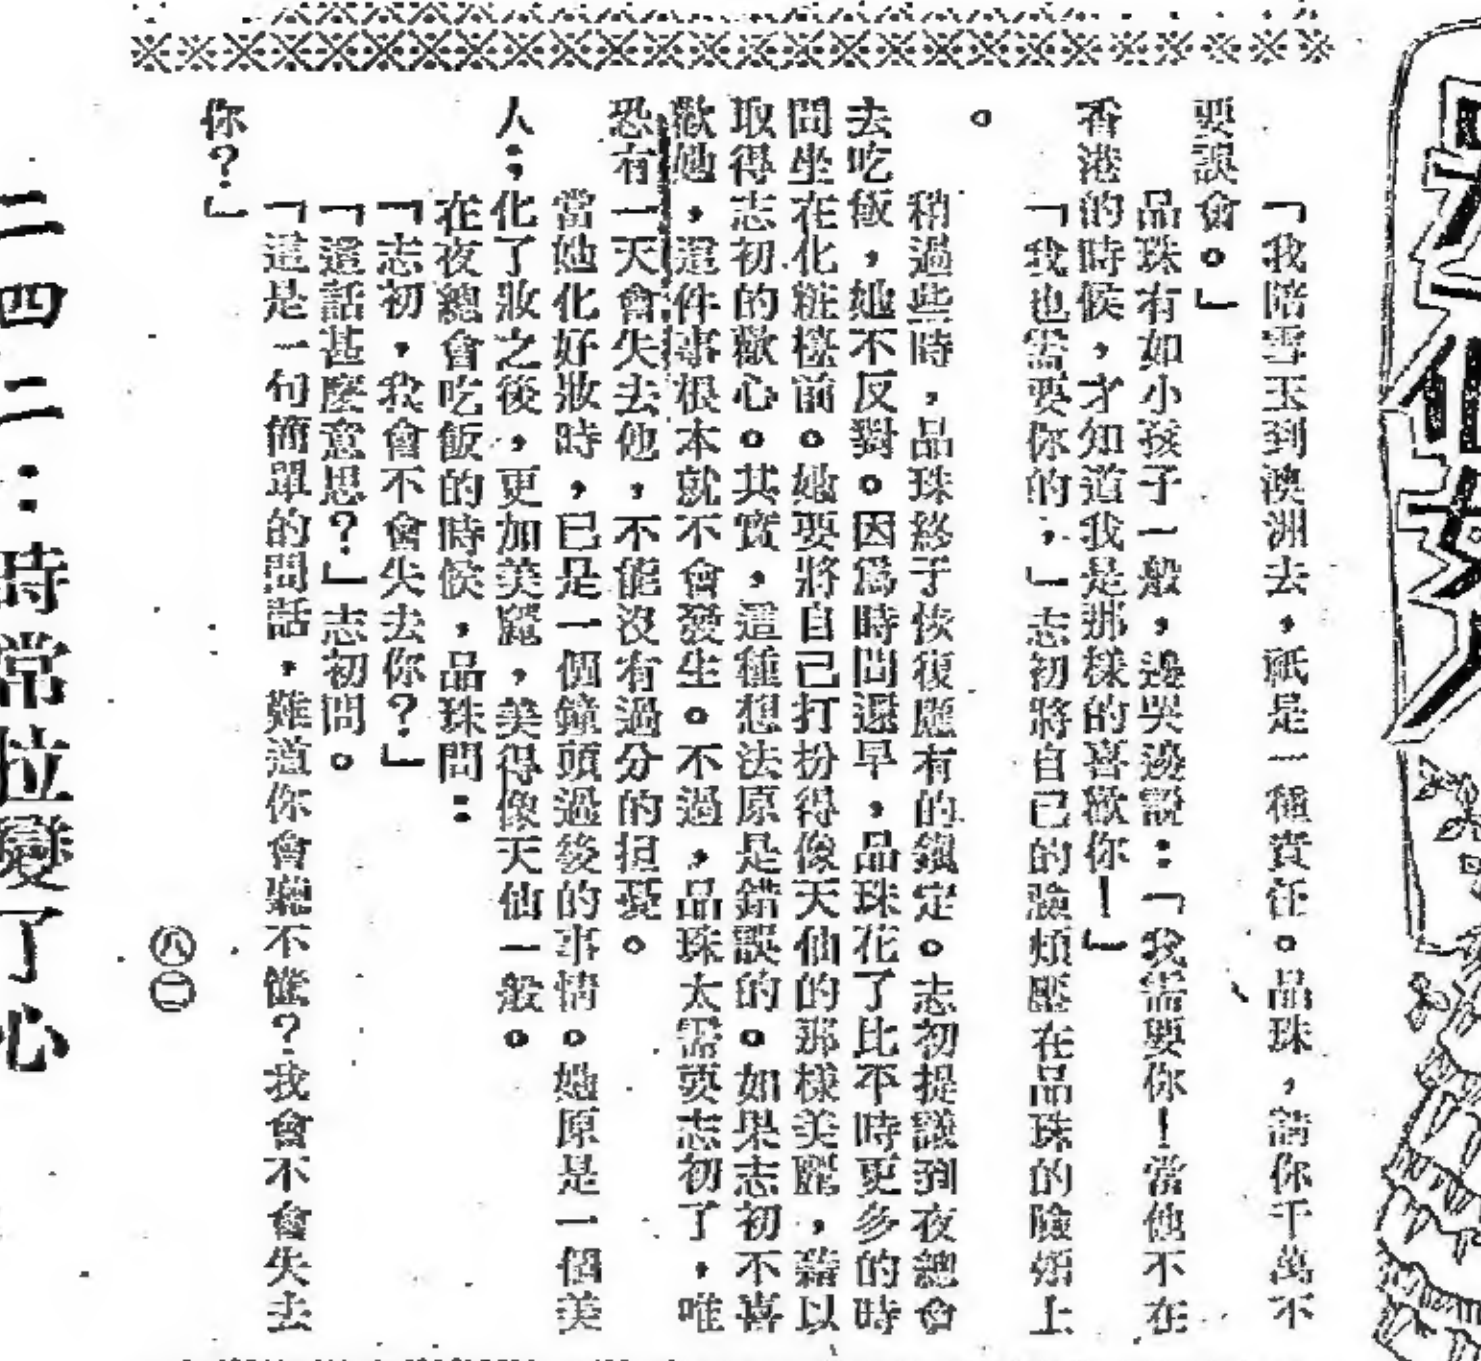 「我陪雪玉到澳洲去，祇是一種責任。品珠，請你千萬不
要誤會。」
品珠有如小孩子一般，邊哭邊說：「我需要你！當他不在
香港的時候，才知道我是那樣的喜歡你！」
「我也需要你的，」志初將自己的臉頰壓在品珠的臉頰上
。
稍過些時，品珠終于恢復應有的鎮定。志初提議到夜總會
去吃飯，她不反對。因爲時間還早，品珠花了比平時更多的時
間坐在化粧檯前。她要將自己打扮得像天仙的那樣美麗，藉以
取得志初的歡心。其實，這種想法原是錯誤的。如果志初不喜
歡她，這件事根本就不會發生。不過，品珠太需要志初了，唯
恐有一天會失去他，不能沒有過分的担憂。
當她化好妝時，已是一個鐘頭過後的事情。她原是一個美
人；化了妝之後，更加美麗，美得像天仙一般。
在夜總會吃飯的時候，品珠問：
「志初，我會不會失去你？」
「這話甚麼意思？」志初問。
「這是一句簡單的問話，難道你會聽不懂？我會不會失去
你？」
㊇㊁
二四二：時常拉變了心